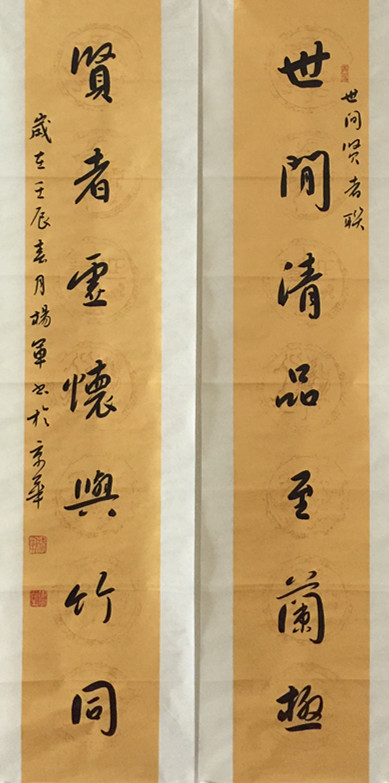 世间贤者联
世間清品至蘭極
賢者虛懷與竹同
歲在壬辰春月楊軍书於京華